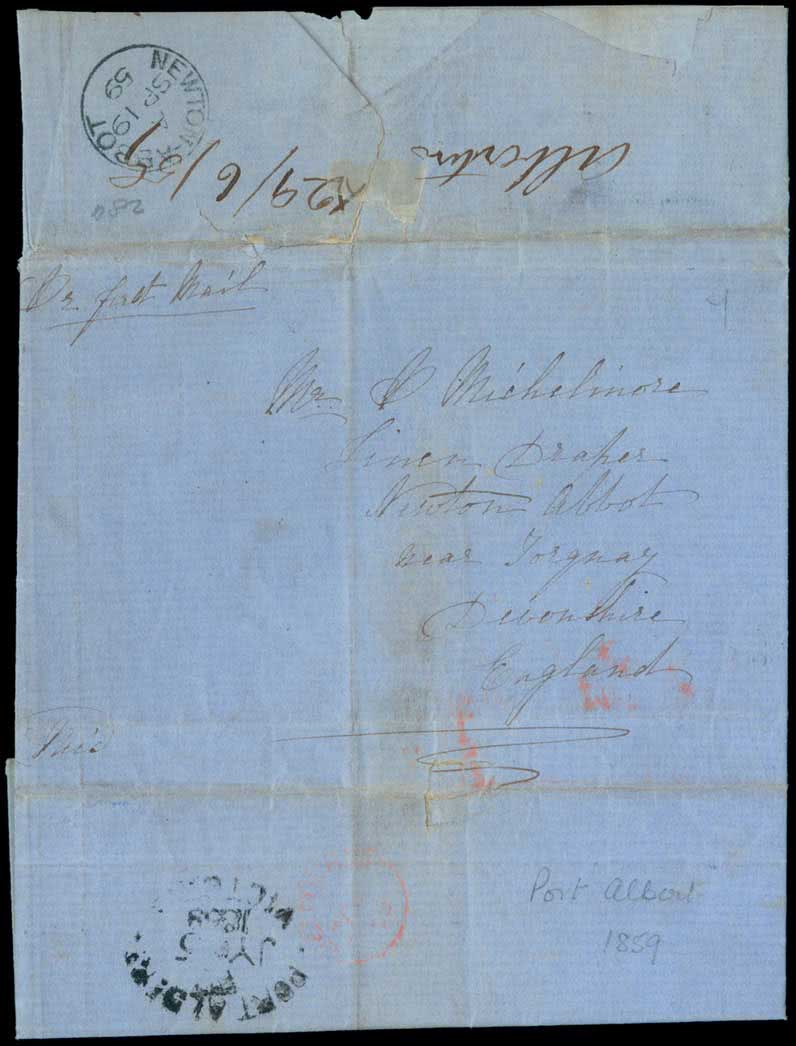 NEWTON ABBOT
SP 19
59
Alberton
29/6/59
Pr first Mail
Mr. P Michelmore
Linen Draper
Newton Abbot
near Torquay
Devonshire
England
Paid
PORT ALBERT
JY 5
1859
VICTORIA
Port Albert
1859